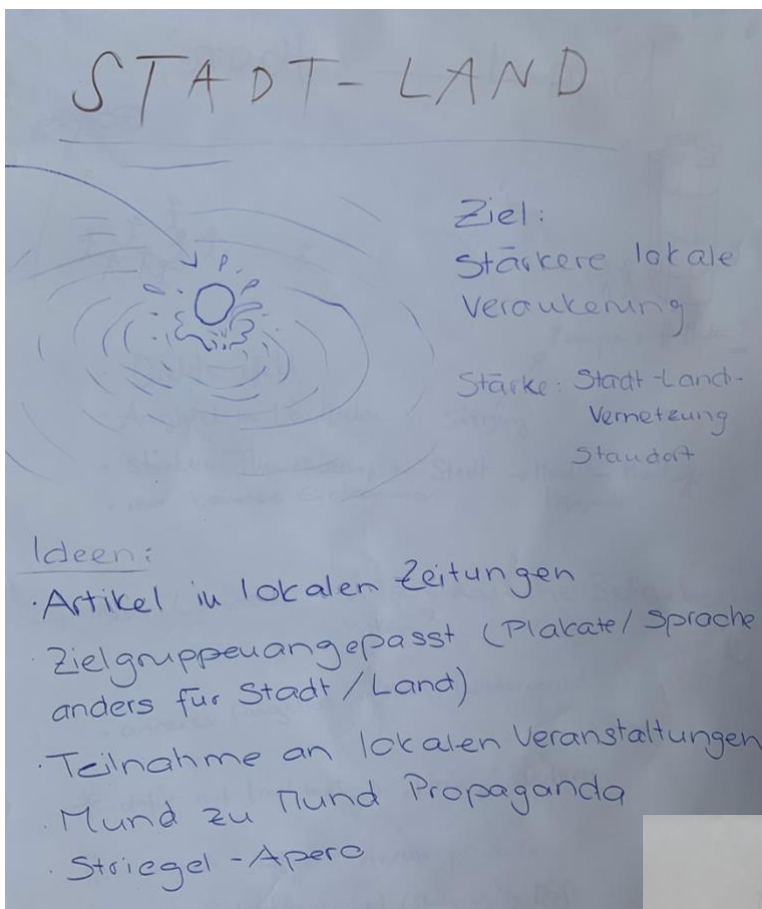 STADT-LAND
Ziel:
Stärkere lokale
Verankerung
Stärke: Stadt-Land-
Vernetzung
Standort
Ideen:
· Artikel in lokalen Zeitungen
· Zielgruppenangepasst (Plakate/Sprache
anders für Stadt/Land)
· Teilnahme an lokalen Veranstaltungen
· Mund zu Mund Propaganda
· Striegel-Apero